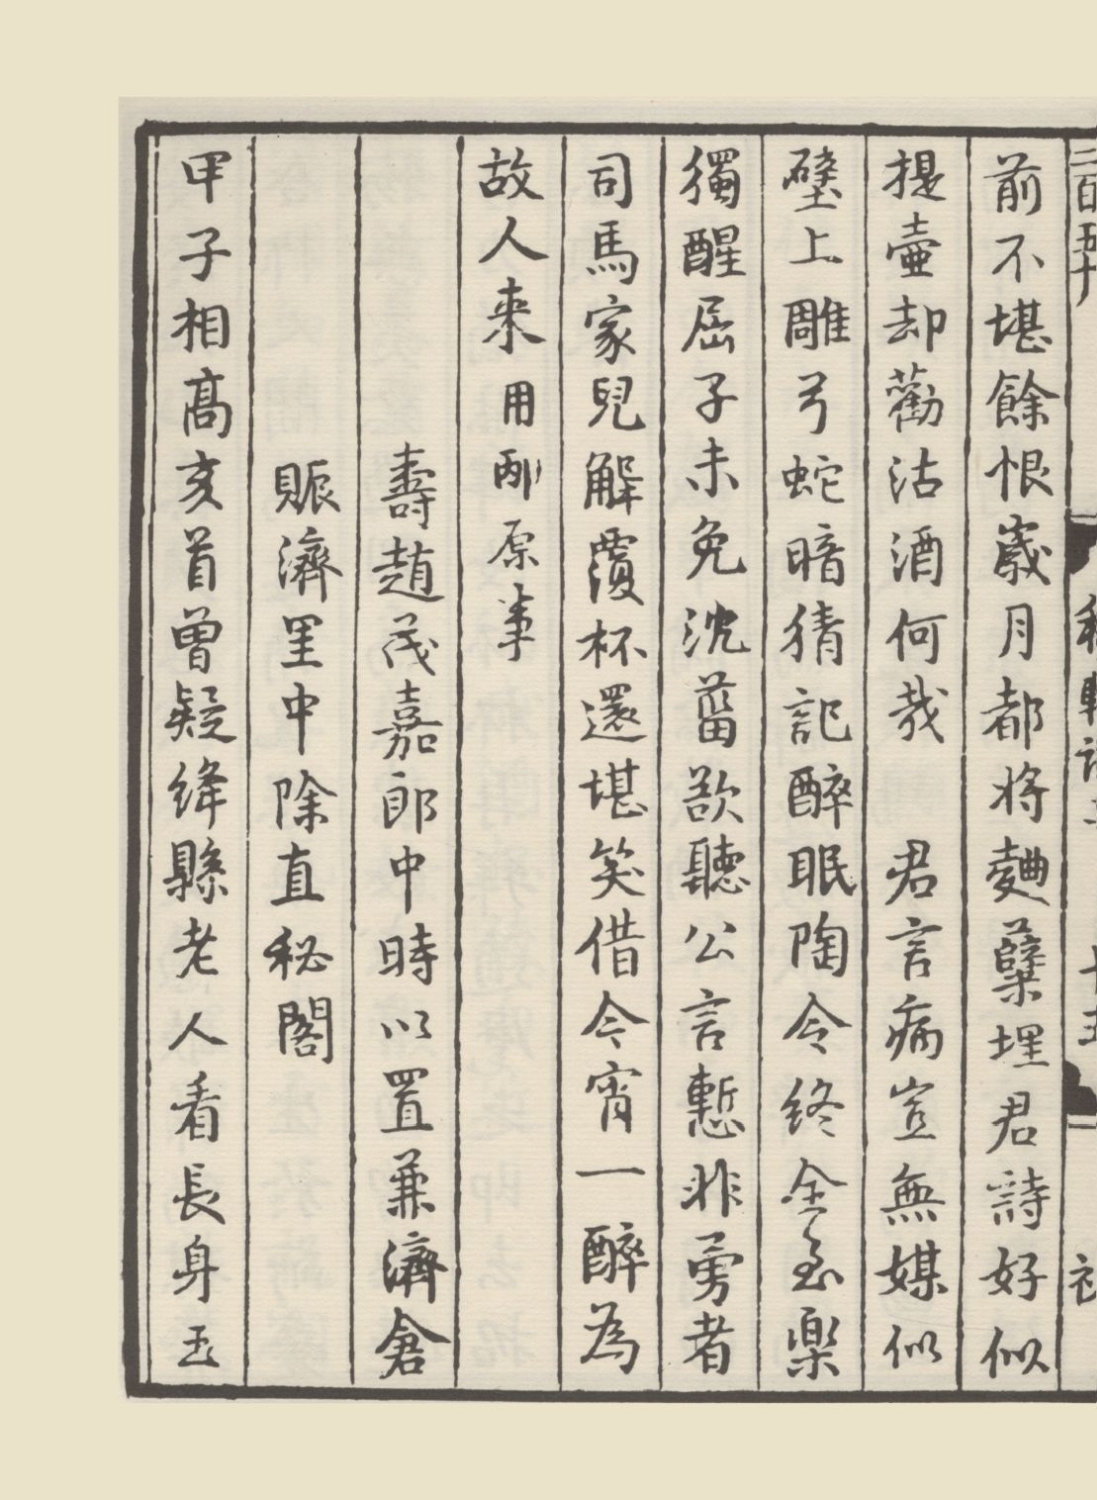 二百五十 稼軒詞
前不堪餘恨歲月都將麯糵埋君詩好似
提壺却勸沽酒何哉　君言病豈無媒似
壁上雕弓蛇暗猜記醉眠陶令終全至樂
獨醒屈子未免沈菑欲聽公言慙非勇者
司馬家兒解覆杯還堪笑借今宵一醉為
故人來用邴原事
壽趙茂嘉郎中時以置兼濟倉
賑濟里中除直秘閣
甲子相高亥首曾疑絳縣老人看長身玉